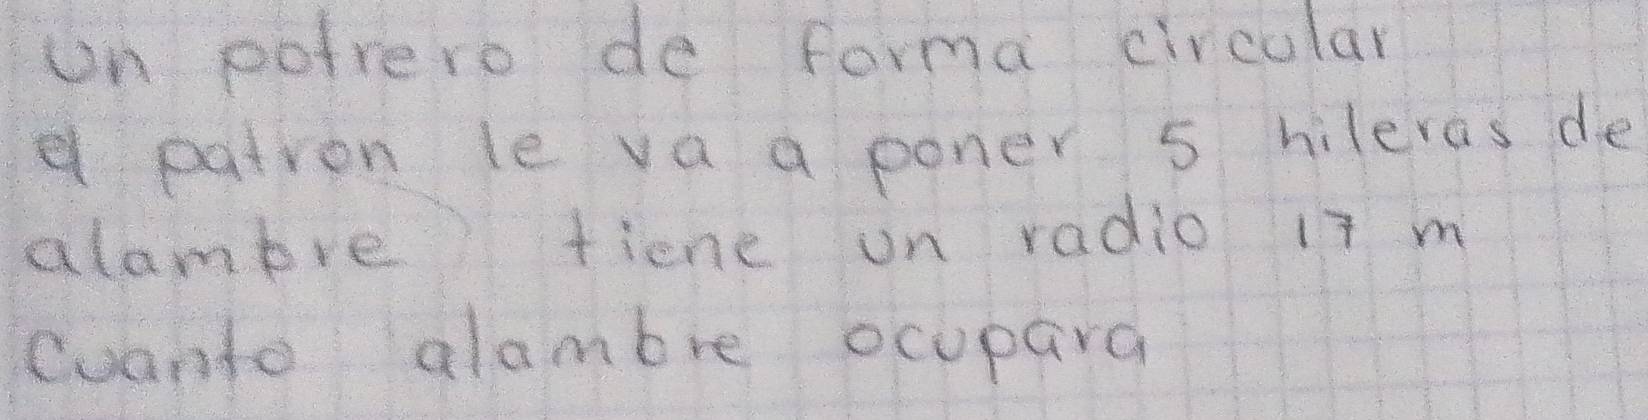 Un potrero de forma circular
el patron le va a poner 5 hileras de
alambre tiene un radio 17 m
Cuanto alambre ocupara